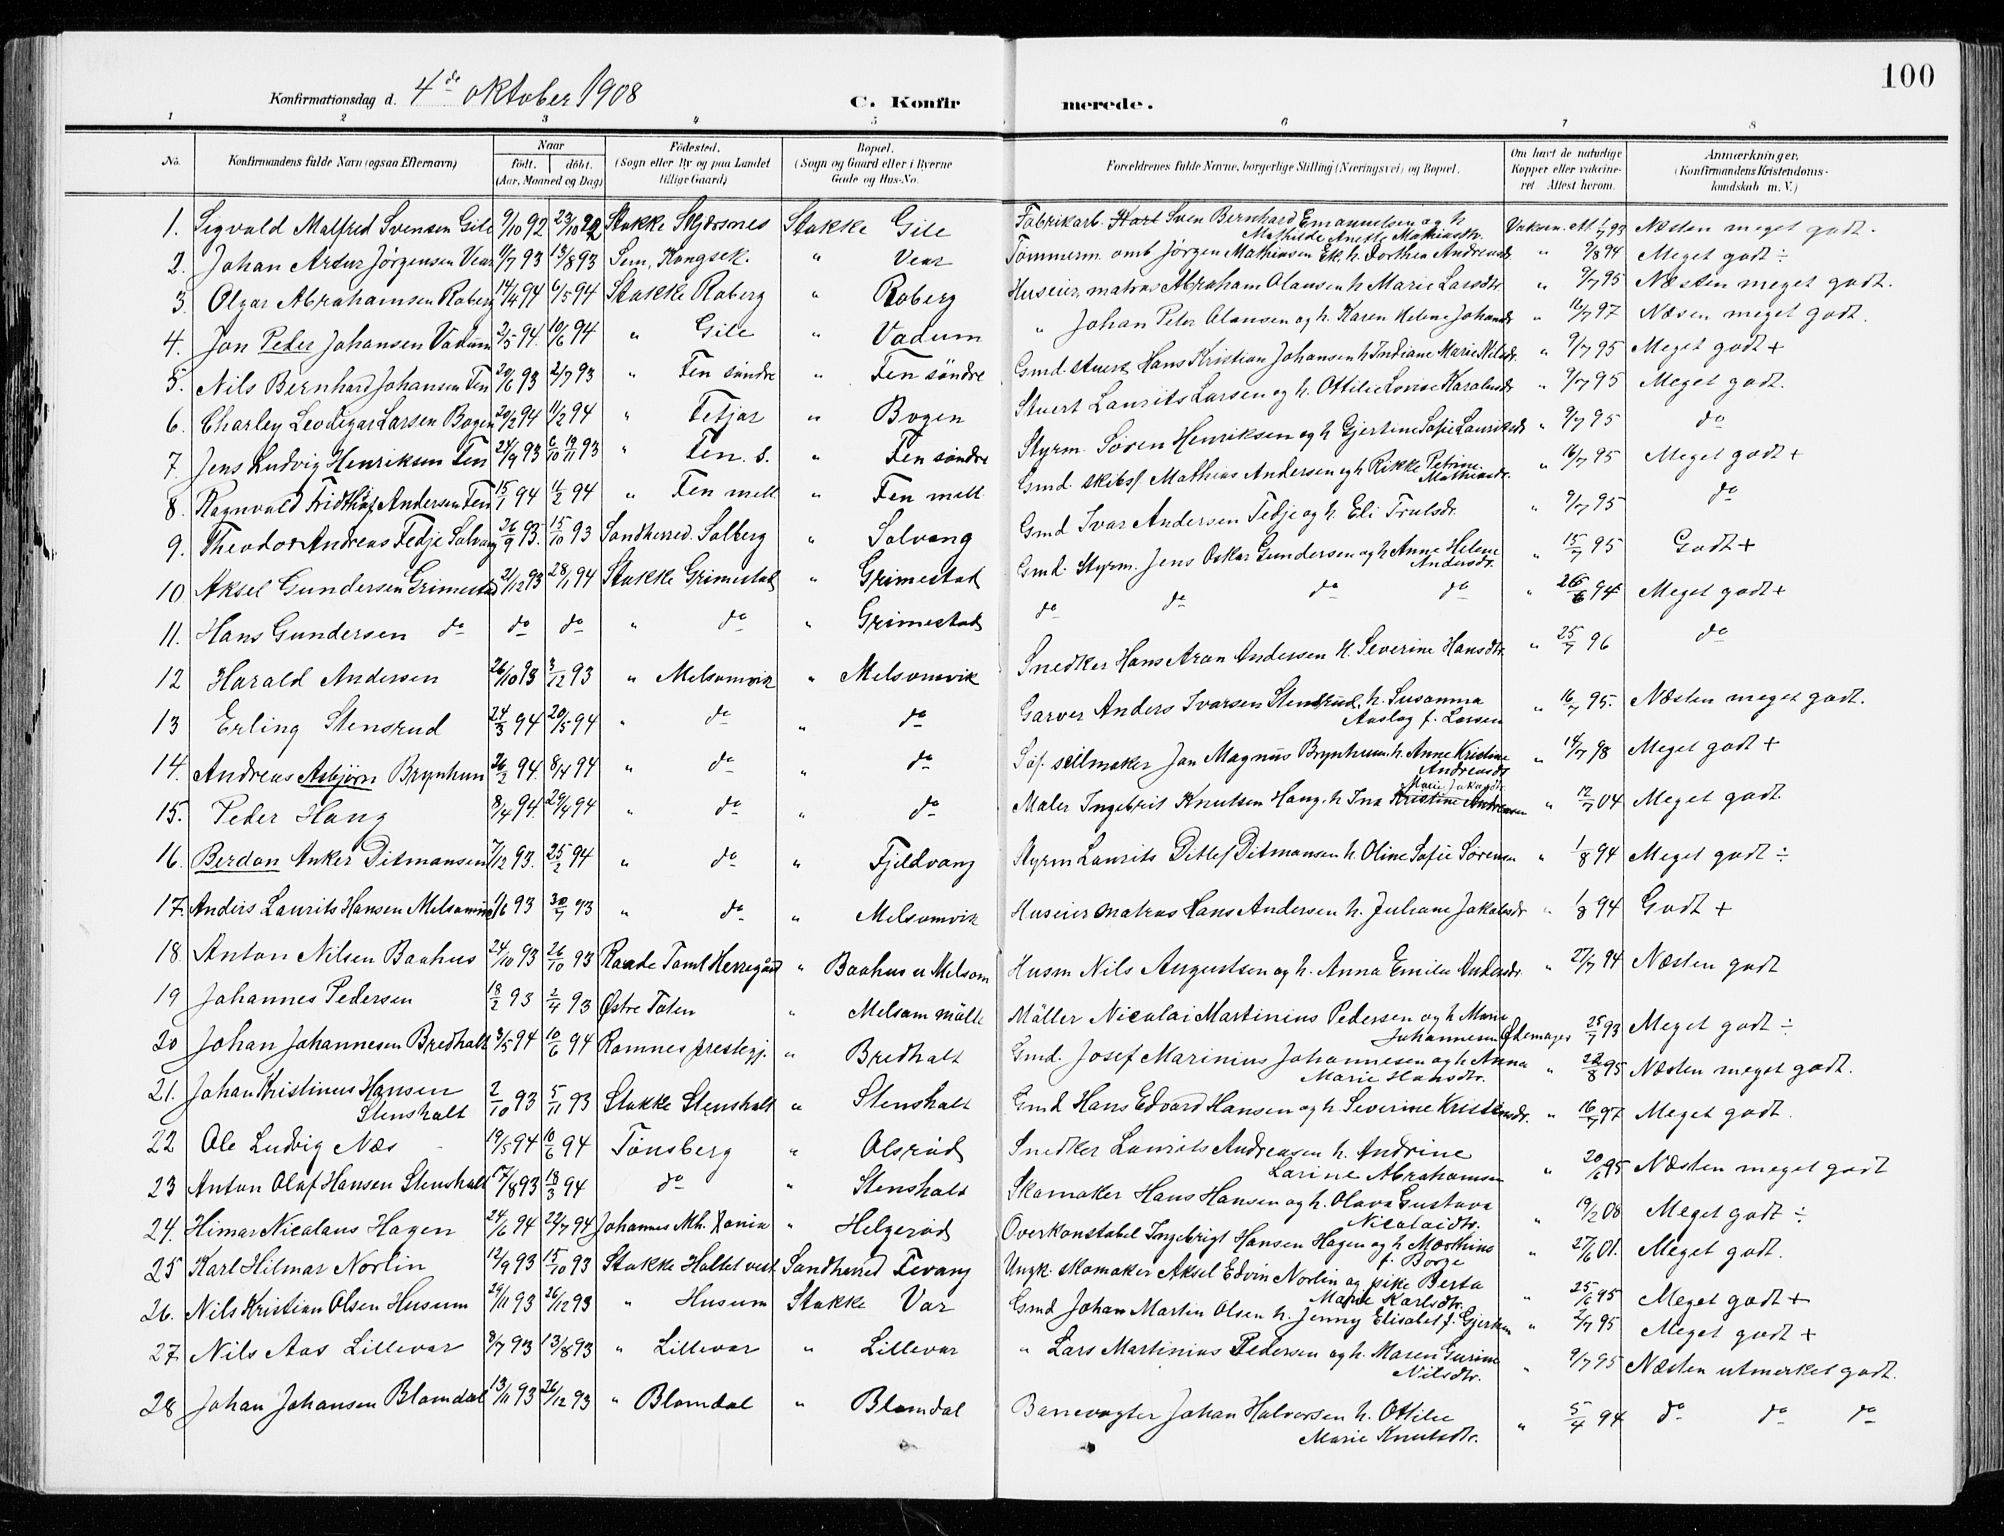 100
Konfirmationsdag d. 4de oktober 1908
C. Konfirmerede.
1 2 3 4 5 6 7 8
No. Konfirmandens fulde Navn (ogsaa Efternavn) Naar født. døbt. (Aar, Maaned og Dag) Fødested. (Sogn eller By og paa Landet tillige Gaard) Bopæl. (Sogn og Gaard eller i Byerne Gade og Hus-No. Forældrenes fulde Navne, borgerlige Stilling (Næringsvei) og Bopæl. Om havt de naturlige Kopper eller vakcineret. Attest herom. Anmærkninger. (Konfirmandens Kristendomskundskab m. V.)
1. Sigvald Malfred Svensen Gile 9/10 92 23/10 92 Stokke Skjærsnes Stokke Gile Fabrikarb. Sven Bernhard Emanuelsen og h Mathilde Anette Mathiasdtr. Vaksin. At. 1/7 93 Næsten meget godt.
2. Johan Artur Jørgensen Vear 11/7 93 13/8 93 Sem, Kongsek. " Vear Tømmerm. omb Jørgen Mathiasen Ek. h. Dorthea Andreasdr " 2/8 94 Meget godt ÷
3. Olgar Abrahamsen Raberg 14/4 94 6/5 94 Stokke Raberg " Roberg Huseier, matros Abraham Olausen h Marie Larsdtr. " 9/7 95 Næsten meget godt.
4. Jon Peder Johansen Vadum 2/5 94. 10/6 94 " Gile " Vadum " Johan Peter Olausen og h. Karen Helene Johansdr " 16/7 97 Næsen meget godt.
5. Nils Bernhard Johansen Fen 20/6 93 2/7 93 " Fen søndre " Fen søndre Gmd. stuert Hans Kristian Johansen h Indiane Marie Nilsdr. " 9/7 95 Meget godt +
6. Charley Leodegar Larsen Bogen 20/12 94 11/2 94 " Fetjar " Bogen Stuert Laurits Larsen og h. Ottilie Lovise Karolusdr " 9/7 95 Meget godt.
7. Jens Ludvig Henriksen Fen 24/9 93 6/10 19/11 93 " Fen. s. " Fen søndre Styrm. Søren Henriksen og h Gjertine Sofie Lauritsdr " 9/7 95 do
8. Ragnvald Fridthjof Andersen Fen 15/1 94 11/2 94 " Fen mell " Fen mell. Gmd. skibsf. Mathias Andersen og h Rikke Petrine Mathiasdr. " 16/7 95 Meget godt +
9. Theodor Andreas Fedje Solvang 26/9 93. 15/10 93 Sandherred. Solberg " Solvang Gmd. Ivar Andersen Fedje og h. Eli Trulsdr. " 9/7 95 do
10. Aksel Gundersen Grimestad 21/12 93 28/1 94 Stokke Grimestad " Grimestad Gmd. Styrm. Jens Oskar Gundersen og h Anne Helene Andersdr. " 15/7 95 Godt +
11. Hans Gundersen do do do " do " Grimestad do do do do " 26/6 94 Meget godt +
12 Harald Andersen 26/10 93 3/12 93 " Melsomvik " Melsomvik Snedker Hans Aron Andersen h. Severine Hansdtr. " 25/7 96 do
13 Erling Stensrud 24/3 94 20/5 94 " do " do Garver Anders Ivarsen Stensrud, h. Susanna Aaslag f. Larsen " 16/7 95. Næsten meget godt.
14. Andreas Asbjørn Brynhun 26/2 94. 8/4 94 " do " do Søf. seilmaker Jan Magnus Brynhun h. Anne Kristine Andreasdr " 14/7 98 Meget godt +
15. Peder Haug 8/4 94. 29/4 94 " do " do Maler Ingebrit Knutsen Haug. h Ina Kristine Andreasen Marie Jakobsdr " 12/7 04 Meget godt.
16. Berdon Anker Ditmansen 7/12 93. 25/2 94 " do " Fjeldvang Styrm Laurits Ditlef Ditmansen h. Oline Sofie Sørensen " 1/8 94 Meget godt ÷
17. Anders Laurits Hansen Melsomvik 1/6 93 30/7 93 " do " Melsomvik Huseier matros Hans Andersen h. Juliane Jakobsdr " 1/8 94 Godt +
18. Anton Nilsen Baahus 24/10 93 26/10 93 Raade Tomt Herregård " Baahus u Melsom Husm Nils Augustsen og h. Anna Emilie Andersdr. " 27/7 94 Næsten godt
19 Johannes Pedersen 18/2 93 2/4 93 Østre Toten " Melsom mølle Møller Nicolai Martinius Pedersen og h Marie Johannesen Ødemager 25/7 93 Meget godt ÷
20 Johan Johannesen Bredholt 3/5 94 10/6 94 Ramnes prestegj. " Bredholt Gmd. Josef Marinius Johannesen og h Anna Marie Hansdtr. " 22/8 95 Næsten meget godt.
21. Johan Kristinius Hansen Stensholt 2/10 93 5/11 93 Stokke Stensholt " Stensholt Gmd Hans Edvard Hansen og h. Severine Kristensdr. " 16/7 97 Meget godt.
22 Ole Ludvig Næs 19/5 94 10/6 94 Tønsberg " Olsrød Snedker Laurits Andreasen h. Andrine Larine Abrahamsen " 20/6 95 Næsten meget godt
23 Anton Olaf Hansen Stensholt 17/8 93 18/3 94 do " Stensholt Skomaker Hans Hansen og h. Olava Gustava Nicolaidtr. " 19/2 08 Meget godt ÷
24. Himar Nicolaus Hagen 24/6 94 22/7 94 Johannes Mh. Xania " Helgerød Overkonstabel Ingebrigt Hansen Hagen og h Marthine f. Borge " 27/6 01. Meget godt.
25 Karl Hilmar Norlin 12/9 93 15/10 93 Stokke Holtet vest. Sandherred Fevang Ungk. skomaker Aksel Edvin Norlin og pike Berta Marie Karlsdtr. " 25/6 95 Meget godt +
26. Nils Kristian Olsen Husum 29/11 93 26/12 93 " Husum Stokke Var Gmd Johan Martin Olsen h. Jenny Elisabet f. Gjertsen " 2/7 95 Meget godt +
27 Nils Aas Lillevar 8/7 93 13/8 93 " Lillevar " Lillevar " Lars Martinius Pedersen og h. Maren Gurine Nilsdtr. " 9/7 95 Næsten utmerket godt.
28 Johan Johansen Blomdal 13/11 93 26/12 93 " Blomdal " Blomdal Banevogter Johan Halvorsen h. Ottilie Marie Knutsdtr. " 5/4 94 do do do